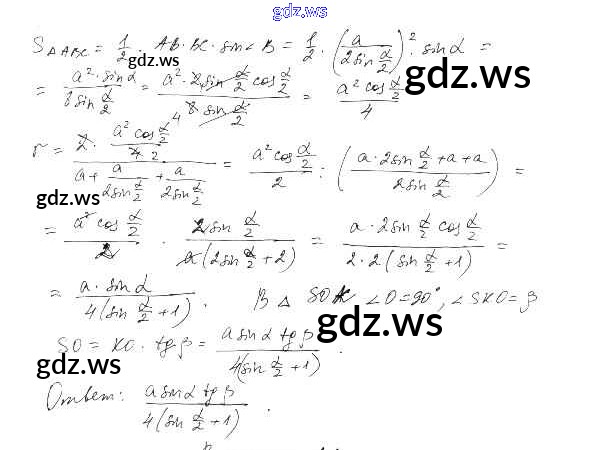 gdz.ws
S△ABC = 1/2 · AB·BC·sin∠B = 1/2 · (a/(2sin α/2))² · sin α =
gdz.ws
gdz.ws
= a²·sin α/(8 sin α/2) = a²·2sin α/2 cos α/2/(8 sin α/2) 4 = a² cos α/2/4
r = 2· a² cos α/2/(4 2)/(a + a/(2sin α/2) + a/(2sin α/2)) = a² cos α/2/2 : ((a·2sin α/2 + a + a)/(2sin α/2)) =
gdz.ws
= a² cos α/2/2 · 2sin α/2/(a(2sin α/2 + 2)) = a·2sin α/2 cos α/2/(2·2(sin α/2 + 1)) =
= a·sin α/(4(sin α/2 + 1)). В △ SOK ∠O = 90°, ∠SKO = β
gdz.ws
SO = KO · tg β = a sin α tg β/(4(sin α/2 + 1)).
gdz.ws
Ответ: a sin α tg β/(4(sin α/2 + 1)).